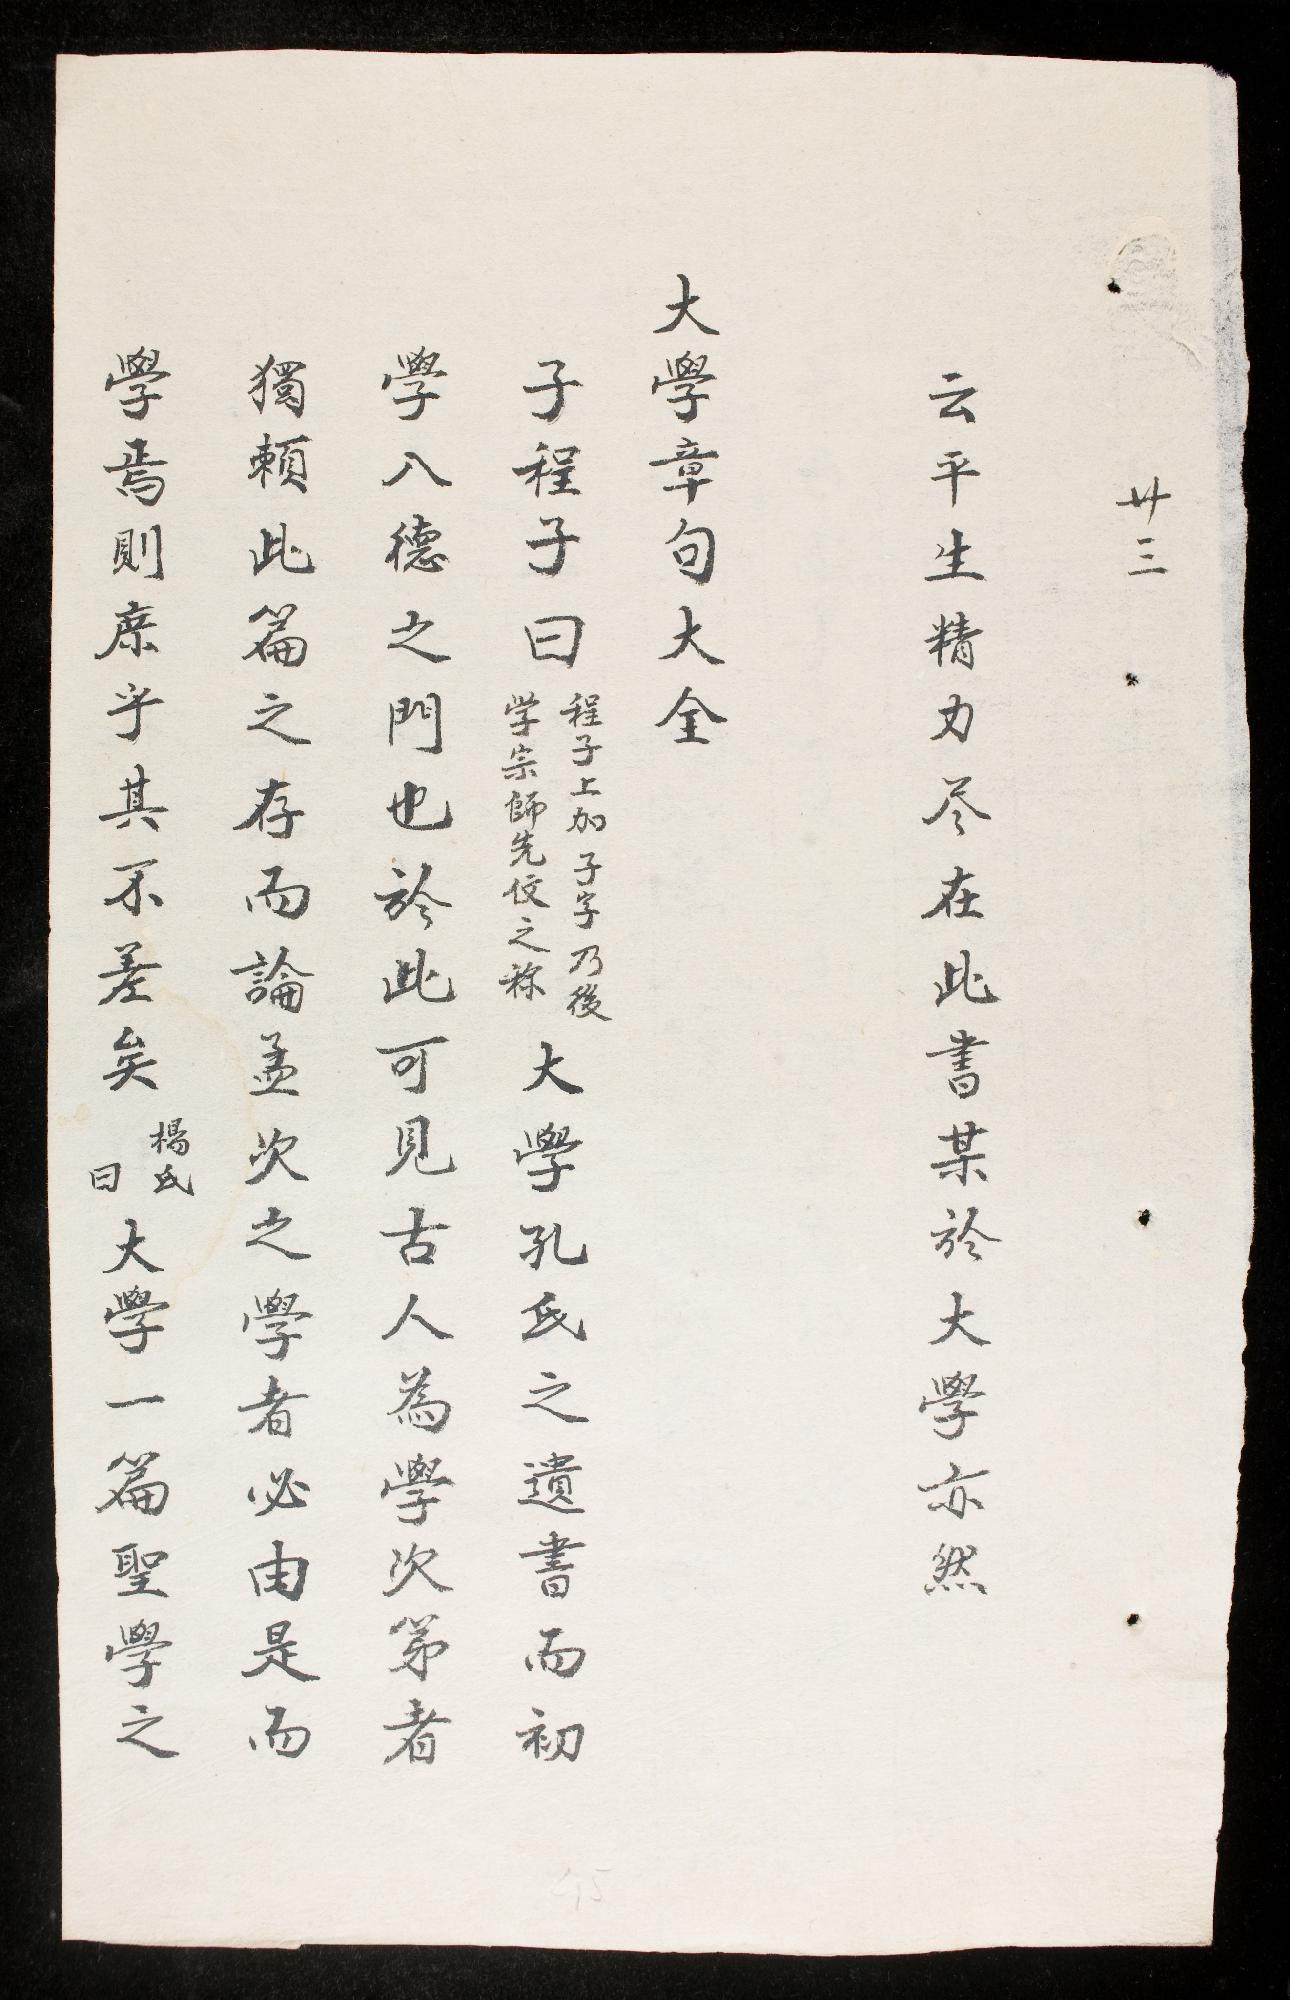 廿三
云平生精力尽在此書某於大學亦然
大學章句大全
子程子曰
程子上加子字乃後
学宗師先仅之称
大學孔氏之遺書而初
學入德之門也於此可見古人為學次第者
獨頼此篇之存而論孟次之學者必由是而
學焉則庶乎其不差矣
楊氏
曰
大學一篇聖學之
45